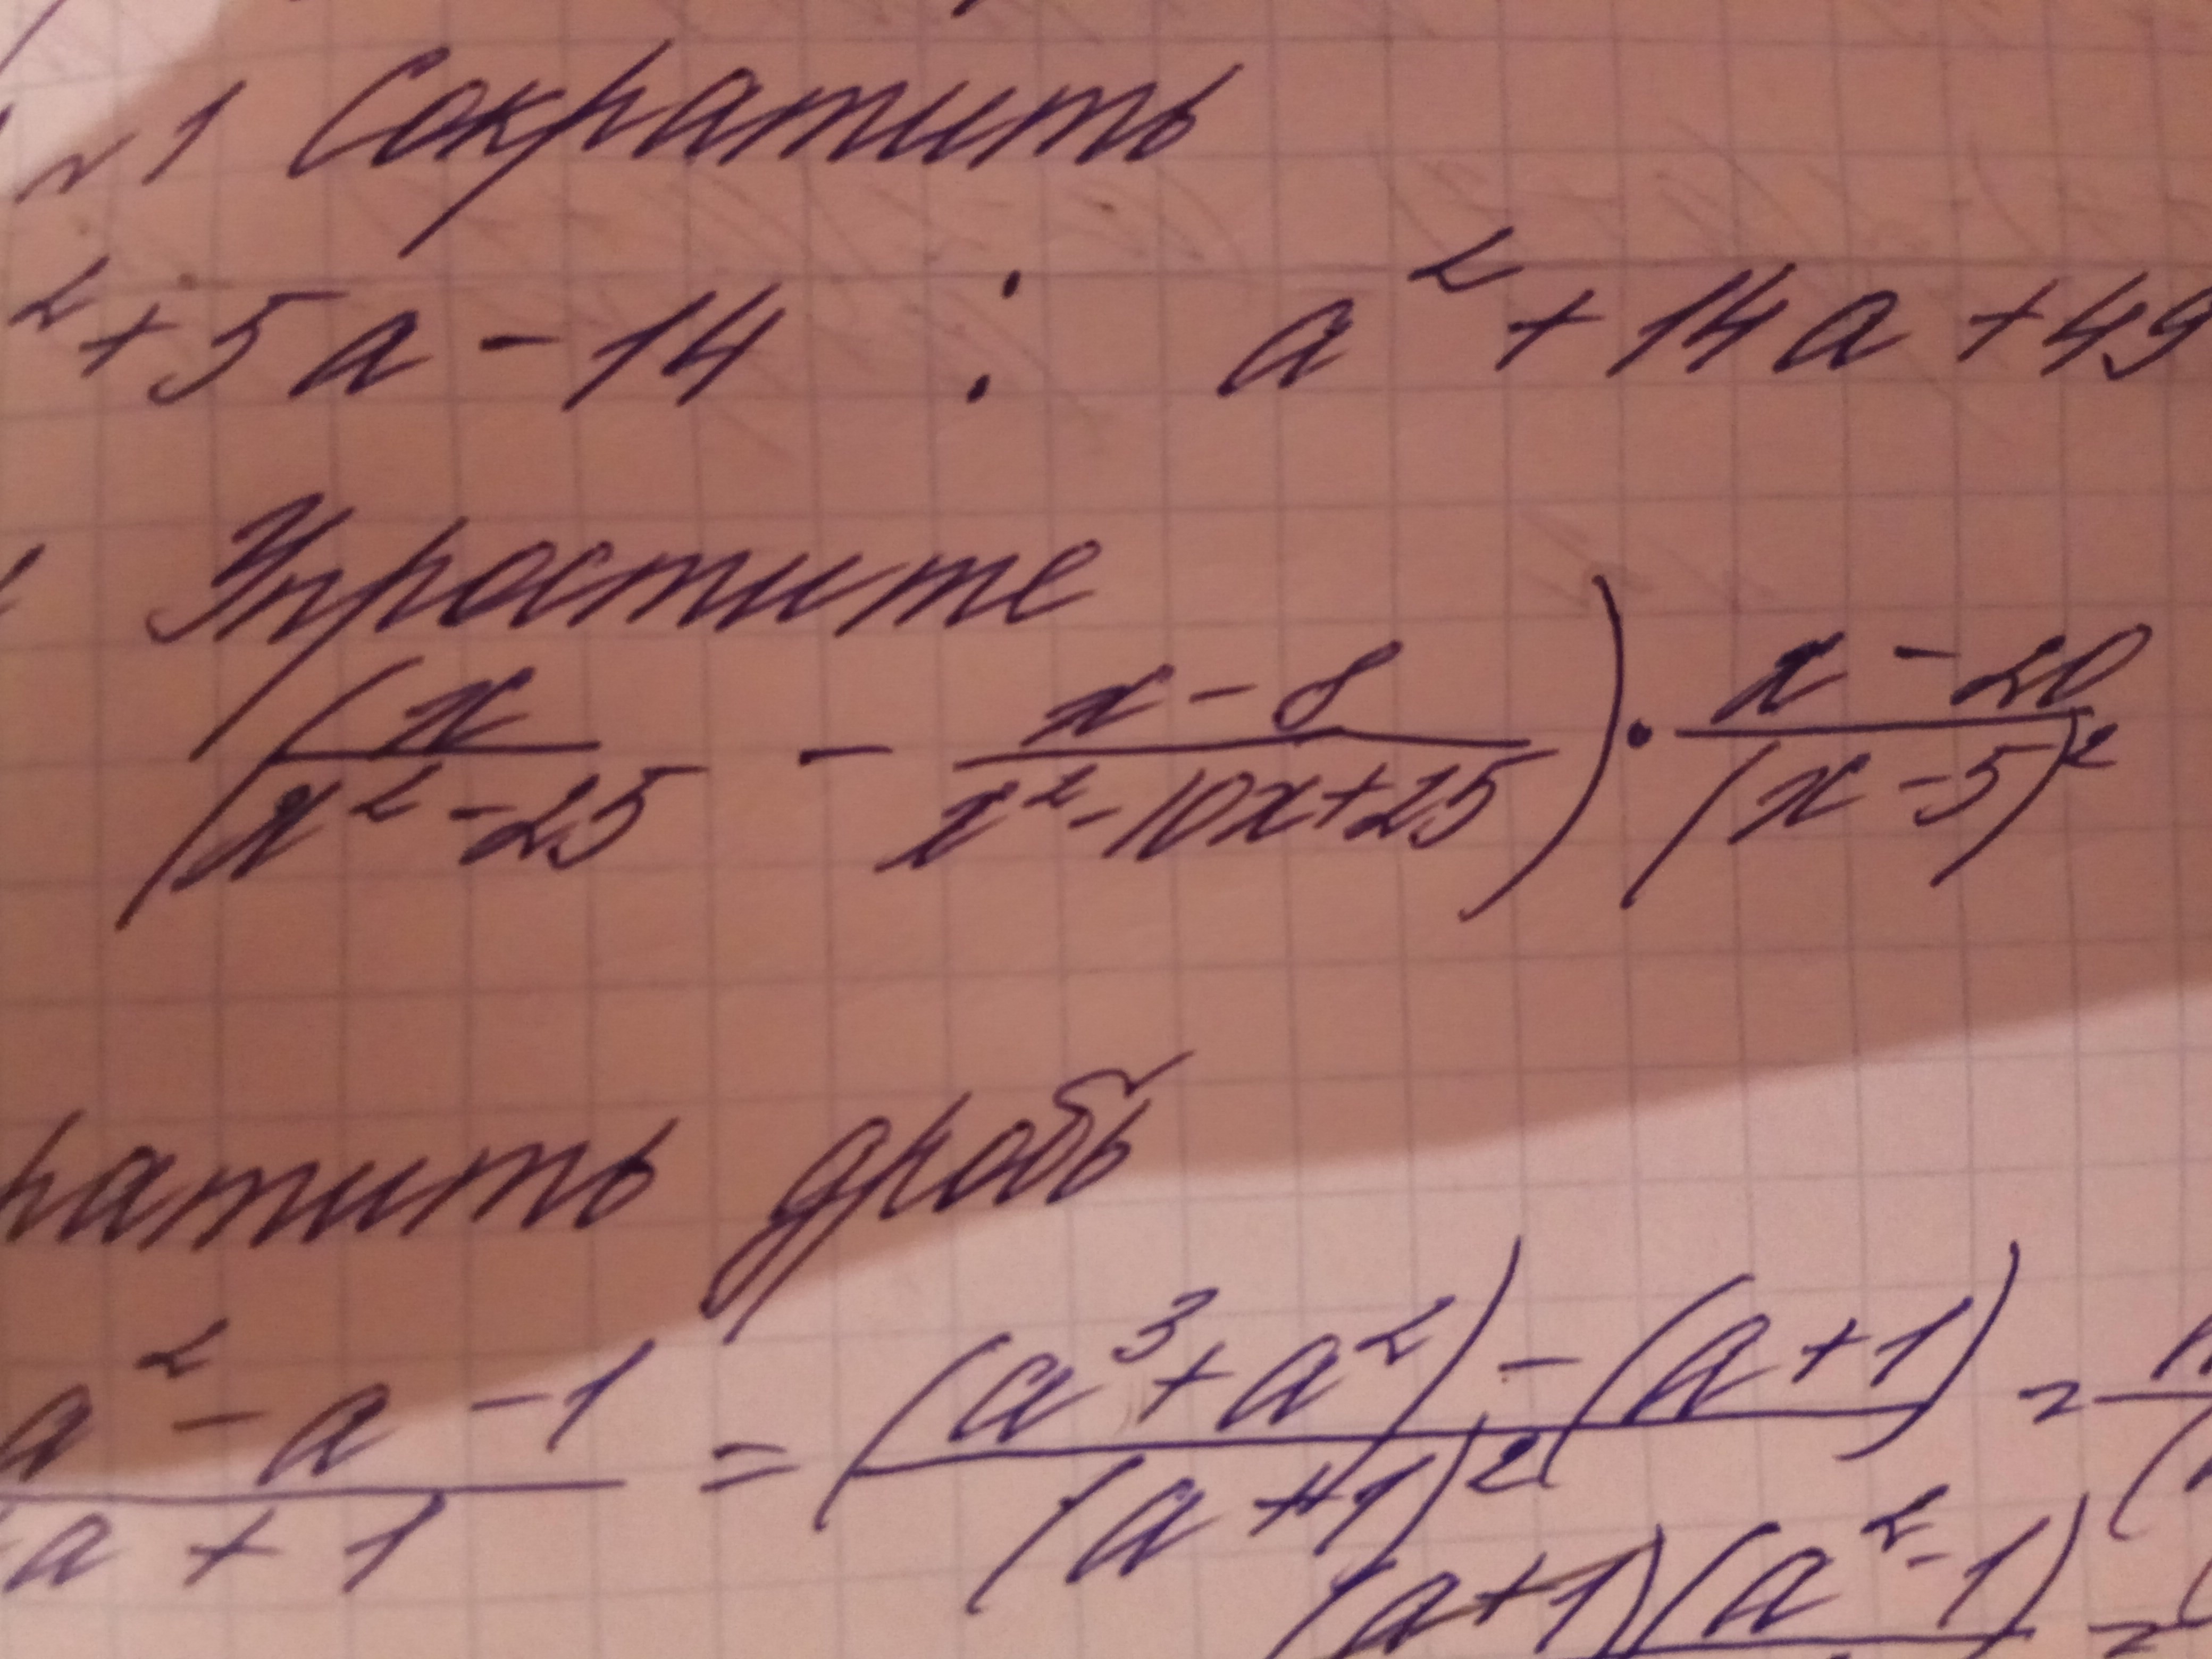 №1 Сократить
² + 5a - 14 : a² + 14a + 49
Упростите
(x/(x² - 25) - (x - 8)/(x² - 10x + 25)) · (x - 20)/(x - 5)²
ратить дробь
(a² - a - 1)/(a + 1) = ((a³ + a²) - (a + 1))/(a + 1)² =
(a + 1)(a² - 1) =